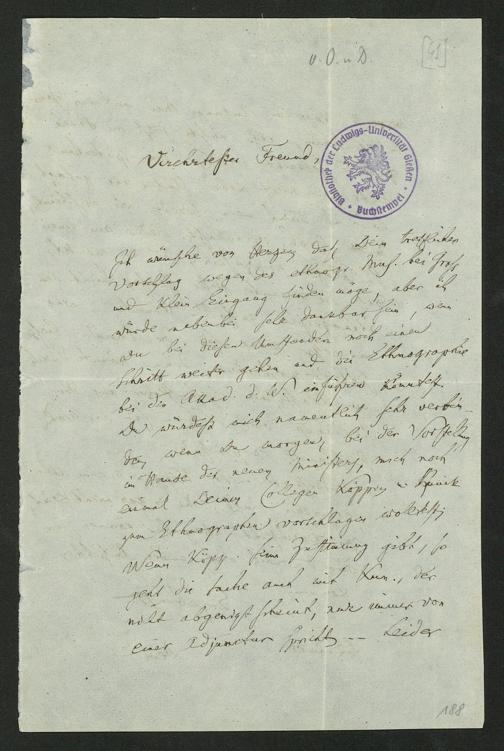 v. O. u. D.
[41]
Verehrtester Freund,
Bibliothek der Ludwigs-Universität Gießen
Buchstempel
Ich wünsche von Herzen daß Dein trefflicher
Vorschlag wegen des ethnogr. Mus. bei Groß
und Klein Eingang finden möge, aber ich
würde nebenbei sehr dankbar sein, wenn
Du bei diesen Umständen noch einen
Schritt weiter gehen und die Ethnographie
bei die Akad. d. W. einführen könntest.
Du würdest mich namentlich sehr verbin-
den, wenn Du morgen, bei der Vorstellung
im Hause des neuen Ministers, mich noch
einmal Deinen Collegen Köppen u.
zum Ethnographen vorschlagen wolltest;
Wenn Köpp. seine Zustimmung giebt, so
geht die Sache auch mit Kun., der
nicht abgeneigt scheint, nur immer von
einer Adjunctur spricht -- Leider
188